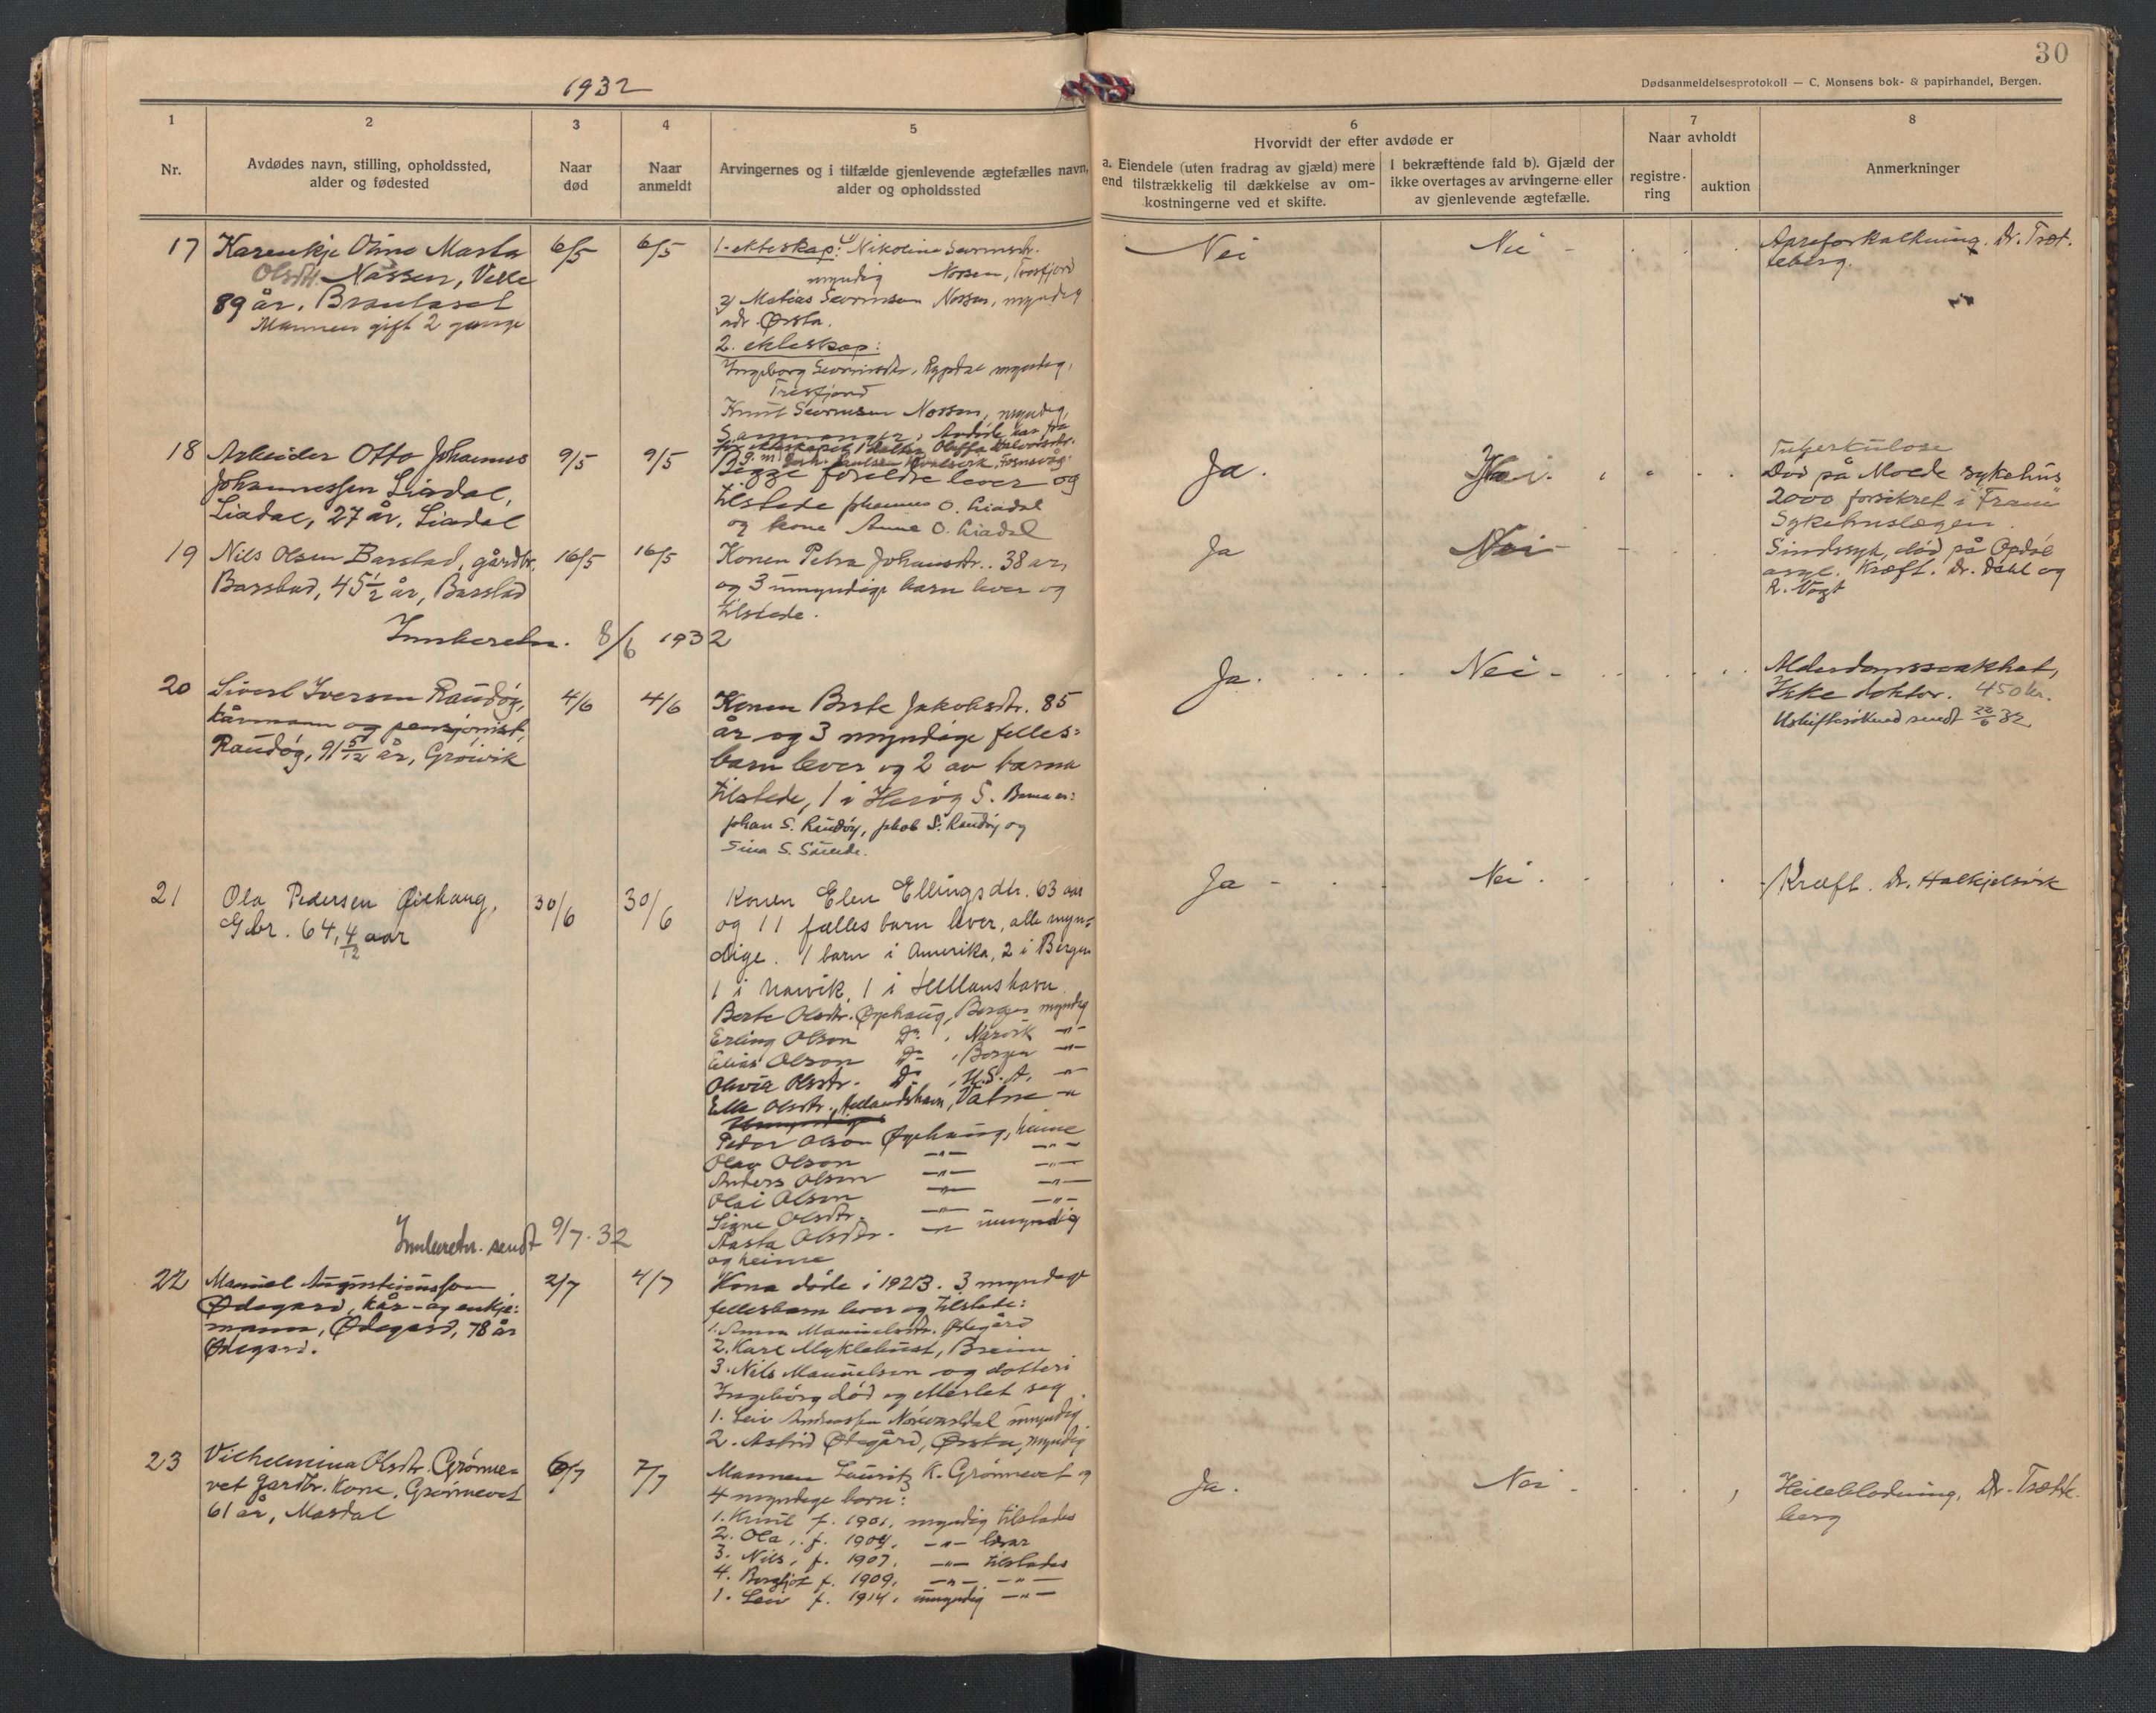 30
Dødsanmeldelsesprotokoll — C. Monsens bok- & papirhandel, Bergen.
1932
1
2
3
4
5
6
7
8
Nr.
Avdødes navn, stilling, opholdssted,
alder og fødested
Naar
død
Naar
anmeldt
Arvingernes og i tilfælde gjenlevende ægtefælles navn,
alder og opholdssted
Hvorvidt der efter avdøde er
a. Eiendele (uten fradrag av gjæld) mere
end tilstrækkelig til dækkelse av om-
kostningerne ved et skifte.
I bekræftende fald b). Gjæld der
ikke overtages av arvingerne eller
av gjenlevende ægtefælle.
Naar avholdt
registre-
ring
auktion
Anmerkninger
17
Karenkje Oline Marta
Olsdtr. Nässen, Velle
89 år,
Mannen gift 2 gange
6/5
6/5
1. ekteskap: 1) Nikoline Sevrinsdtr.
myndig Nossen, Tresfjord
2) Matias Sevrinsen Nossen, myndig
adr. Ørsta.
2. ekteskap:
Ingeborg Sevrinsdtr. Rypdal myndig,
Tresfjord
Knut Sevrinsen Nossen, myndig,
Nei
Nei -
Areforkalkning. Dr. Træt-
teberg.
18
Arbeider Otto Johannes
Johannessen Liadal,
Liadal, 27 år, Liadal
9/5
9/5
Begge foreldre lever og
tilstede Johannes O. Liadal
og kone Anne O. Liadal
Ja.
Nei.
Tuberkulose
Död på Molde sykehus
2000 forsikret i "Fram"
Sykehuslægen.
19
Nils Olsen Barstad, gårdbr.
Barstad, 45 1/2 år, Barstad
16/5
16/5
Konen Petra Johansdtr.. 38 ar,
og 3 umyndige barn lever og
tilstede.
Ja
Nei -
Sindssyk, död på Opdöl
asyl. Kræft. Dr. Dahl og
R. Vogt
Innberetn. 8/6 1932
20
Sivert Iversen Raudöy,
kårmann og pensjonist,
Raudöy, 91 5/12 år, Gröivik
4/6
4/6
Konen Berte Jakobsdtr. 85
år og 3 myndige felles=
barn lever og 2 av barna
tilstede, 1 i Heröy S. Barna er:
Johan S. Raudöy, Jakob S. Raudöy og
Sina S.
Ja.
Nei -
Alderdomssvakhet,
Ikke doktor. 450 kr.
Uskiftesöknad sendt 22/6 32
21
Ola Pedersen Öiehaug,
Gbr. 64, 4/12 aar
30/6
30/6
Konen Elen Ellingsdtr. 63 aar
og 11 fælles barn lever, alle myn=
dige. 1 barn i Amerika, 2 i Bergen
1 i Narvik, 1 i Hellandshavn
Berte Olsdtr. Øyehaug, Bergen myndig
Erling Olson Do , Narvik —"—
Elias Olson Do , Bergen —"—
Olivia Olsdtr. Do , U.S.A. —"—
Ella Olsdtr., Hellandshavn, Vatne —"
Peder Olson Øyehaug, heime
Olav Olson —"— —"—
Anders Olson —"— —"—
Olai Olson —"— —"—
Signe Olsdtr. —"— —"—
Aasta Olsdtr. —"— umyndig
og heime
Ja -
Nei.
Kræft. Dr. Halkjelsvik
Innberetn. sendt 9/7. 32
22
Manuel Augustinussen
Ødegard, kår- og enkje=
mann, Ødegard, 78 år
Ødegard.
2/7
4/7
Kona döde i 1923. 3 myndige
fellesbarn lever og tilstede:
1. Anna Manuelsdtr. Ødegård
2. Karl Myklebust, Breim
3. Nils Manuelsen og dotteri
Ingebörg död og etterlet seg
1. Leiv Andreassen umyndig
2. Astrid Ødegård, Ørsta, myndig
23
Vilhelmina Olsdtr. Grönne=
vet gardbr. Kone, Grönnevet
61 år, Masdal
6/7
7/7
Mannen Lauritz K. Grönnevet og
4 myndige born:
1. Knut f. 1901. myndig tilstades
2. Ola, f. 1904, —"— lærar
3. Nils, f. 1907, —"— tilstades
4. Bergljot f. 1909, —"— —"—
1. Leiv f. 1914, umyndig —"—
Ja.
Nei -
Heileblödning, Dr. Trætte-
berg